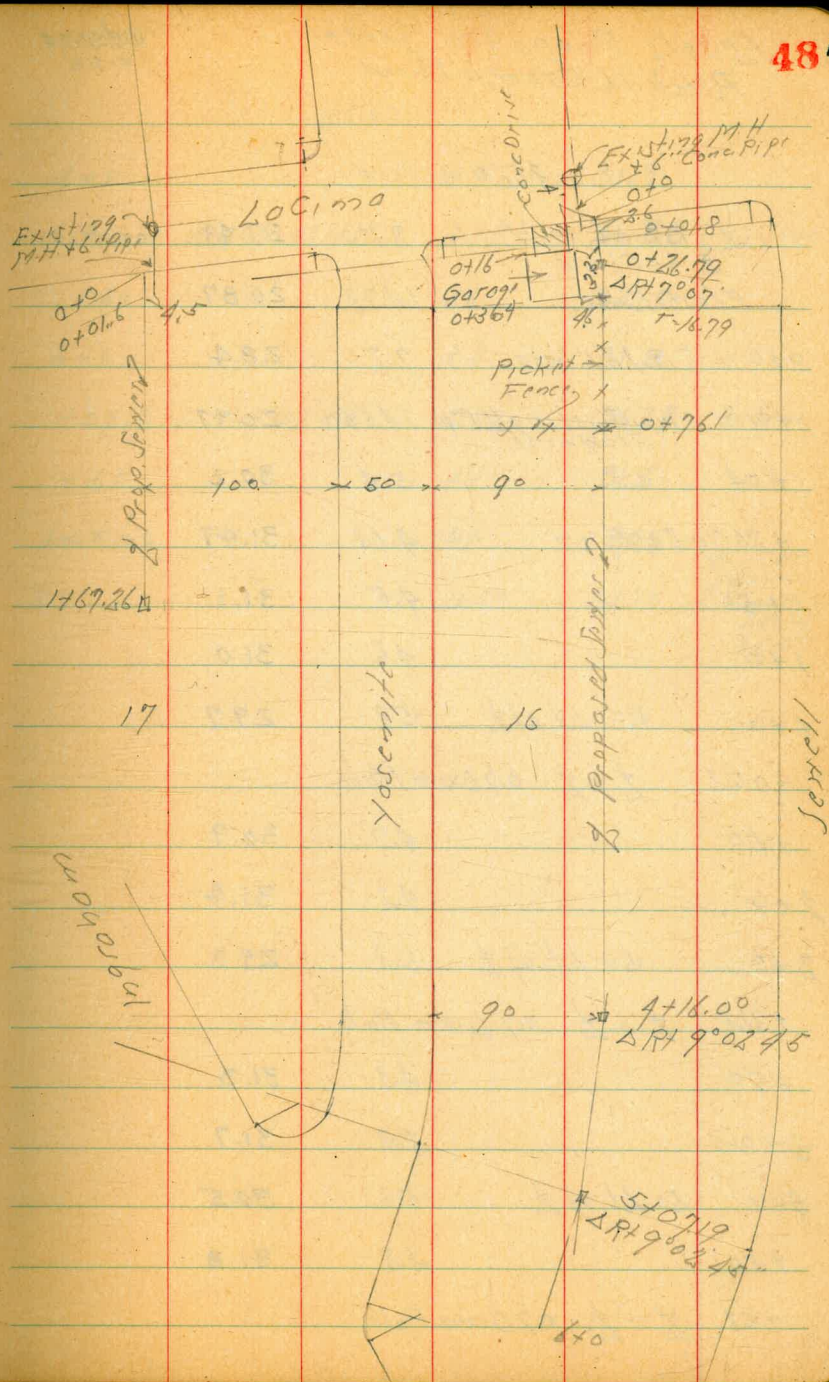 48
Conc Drive
Existing M.H
+ 6" Conc Pipe
0+0
3.6
0+01.8
Existing
M.H + 6" Pipe
0+0
0+01.6
4.5
0+16
Garage
0+36.4
0+26.79
Δ Rt 7°07'
4.6
Picket
Fence
0+76.1
100
50
90
⅊ Prop. Sewer
1+67.26
17
Yosemite
16
⅊ Proposed Sewer
Sewell
90
4+16.00
Δ Rt 9°02'45
5+07.19
Δ Rt 9°02'45"
6+0